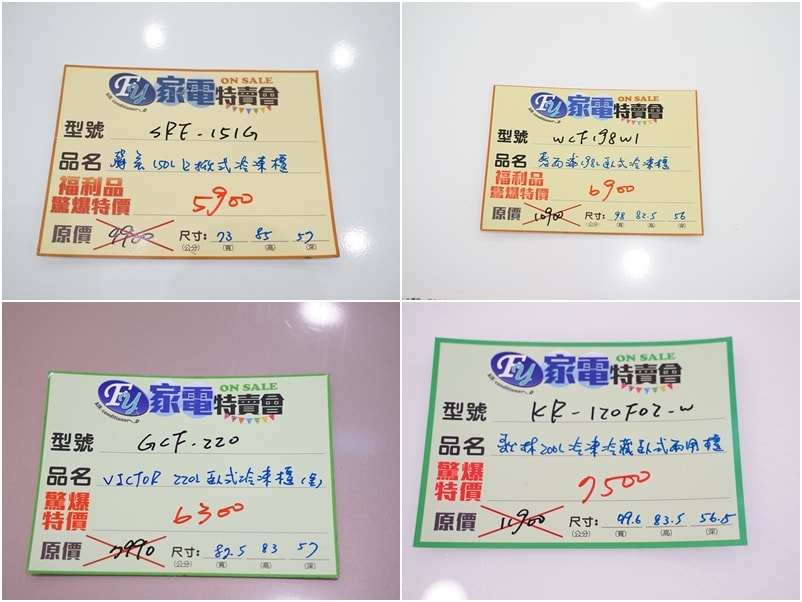 Fy 家電特賣會 ON SALE
型號 SRF-151G
品名 聲寶150L上掀式冷凍櫃
福利品
驚爆特價 5900
原價 9900 尺寸: 73 85 57
(公分) (寬) (高) (深)
Fy 家電特賣會 ON SALE
型號 WCF198W1
品名 惠而浦198L臥式冷凍櫃
福利品
驚爆特價 6900
原價 10900 尺寸: 98 82.5 56
(公分) (寬) (高) (深)
Fy 家電特賣會 ON SALE
型號 GCF-220
品名 VICTOR 220L臥式冷凍櫃
驚爆
特價 6300
原價 7990 尺寸: 82.5 83 57
(公分) (寬) (高) (深)
Fy 家電特賣會 ON SALE
型號 KR-120F02-W
品名 歌林200L冷凍冷藏臥式兩用櫃
驚爆
特價 7500
原價 11900 尺寸: 99.6 83.5 56.5
(公分) (寬) (高) (深)